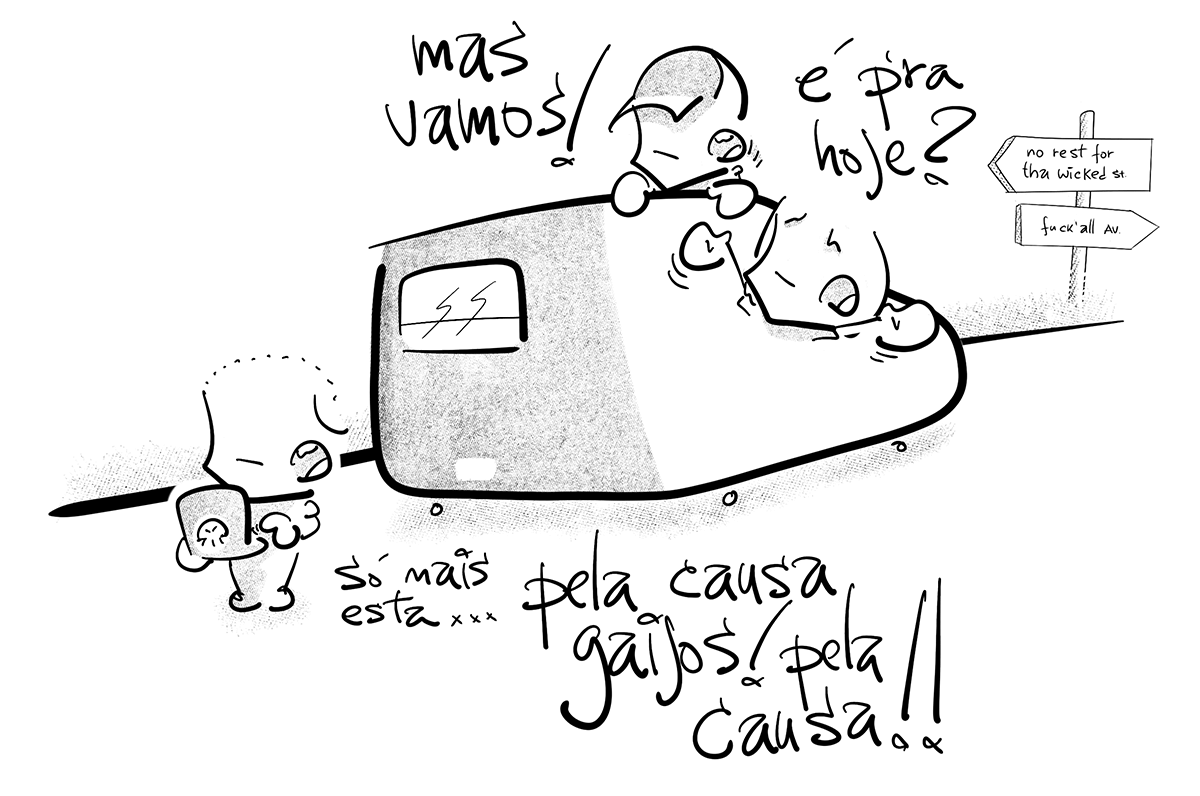 mas
vamos!
é pra
hoje?
no rest for
tha wicked st.
fuck'all AV.
só mais
esta...
pela causa
gaijos! pela
causa!!